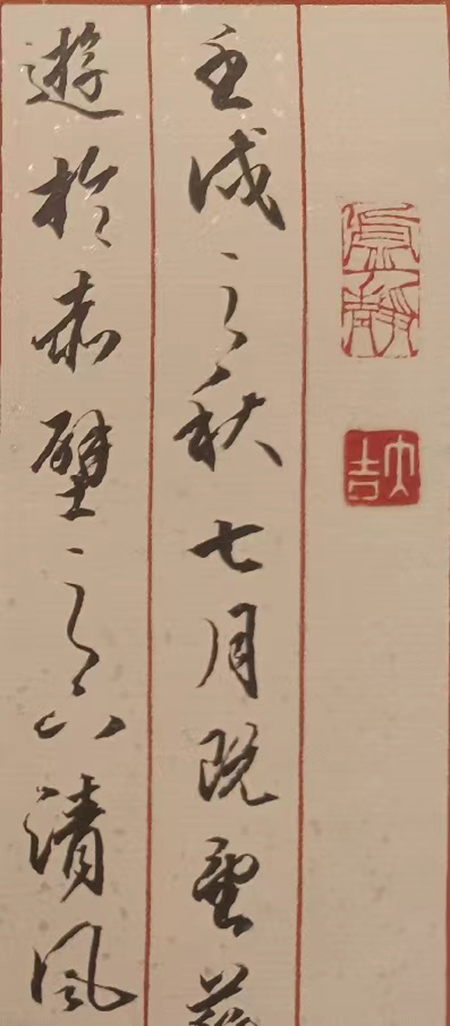 大吉
壬戌之秋七月既望蘇
遊於赤壁之下清風